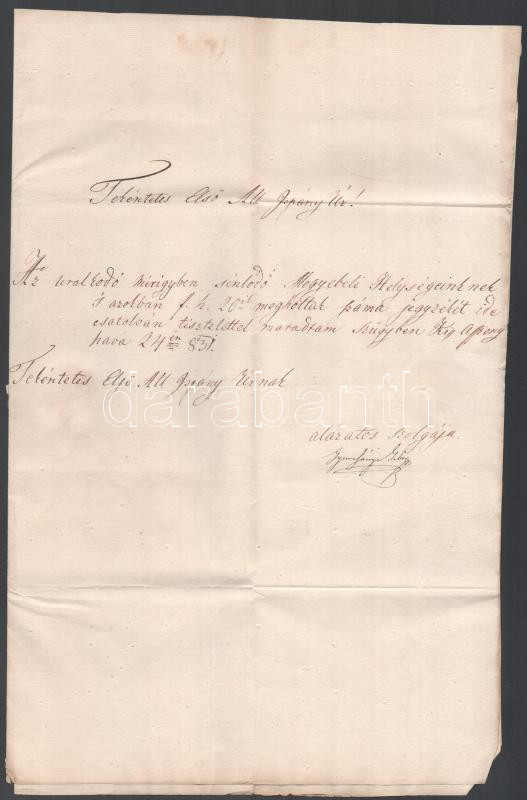 Tekéntetes Első All Ispány Úr!
Az uralkodó mirigyben sinlődő Megyebeli Helységeinknek
s azokban f. h. 20ik meghottak száma jegyzékét ide
csatolván tisztelettel maradtam Szügyben Kis Asszony
hava 24én 831.
Tekéntetes Első All Ispány Urnak
alazatos szolgája.
darabanth